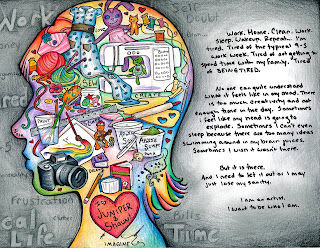 Work
Self
Doubt
Work. Home. Clean. Work
sleep. Wakeup. Repeat... I'm
tired. Tired of the typical 9-5
work week. Tired of not getting to
spend time with my family. Tired
of BEING TIRED.
No one can quite understand
what it feels like in my mind. There
is too much creativity and not
enough time in the day. Sometimes
I feel like my head is going to
explode. Sometimes I can't even
sleep because there are too many ideas
swimming around in my brain juices.
Sometimes I wish it wasn't there.
But it is there.
And I need to let it out or I may
just lose my sanity.
I am an artist.
I want to be who I am.
frustration
JUNIPER
&
Shaw
IMAGINE
Life
Bills
Time